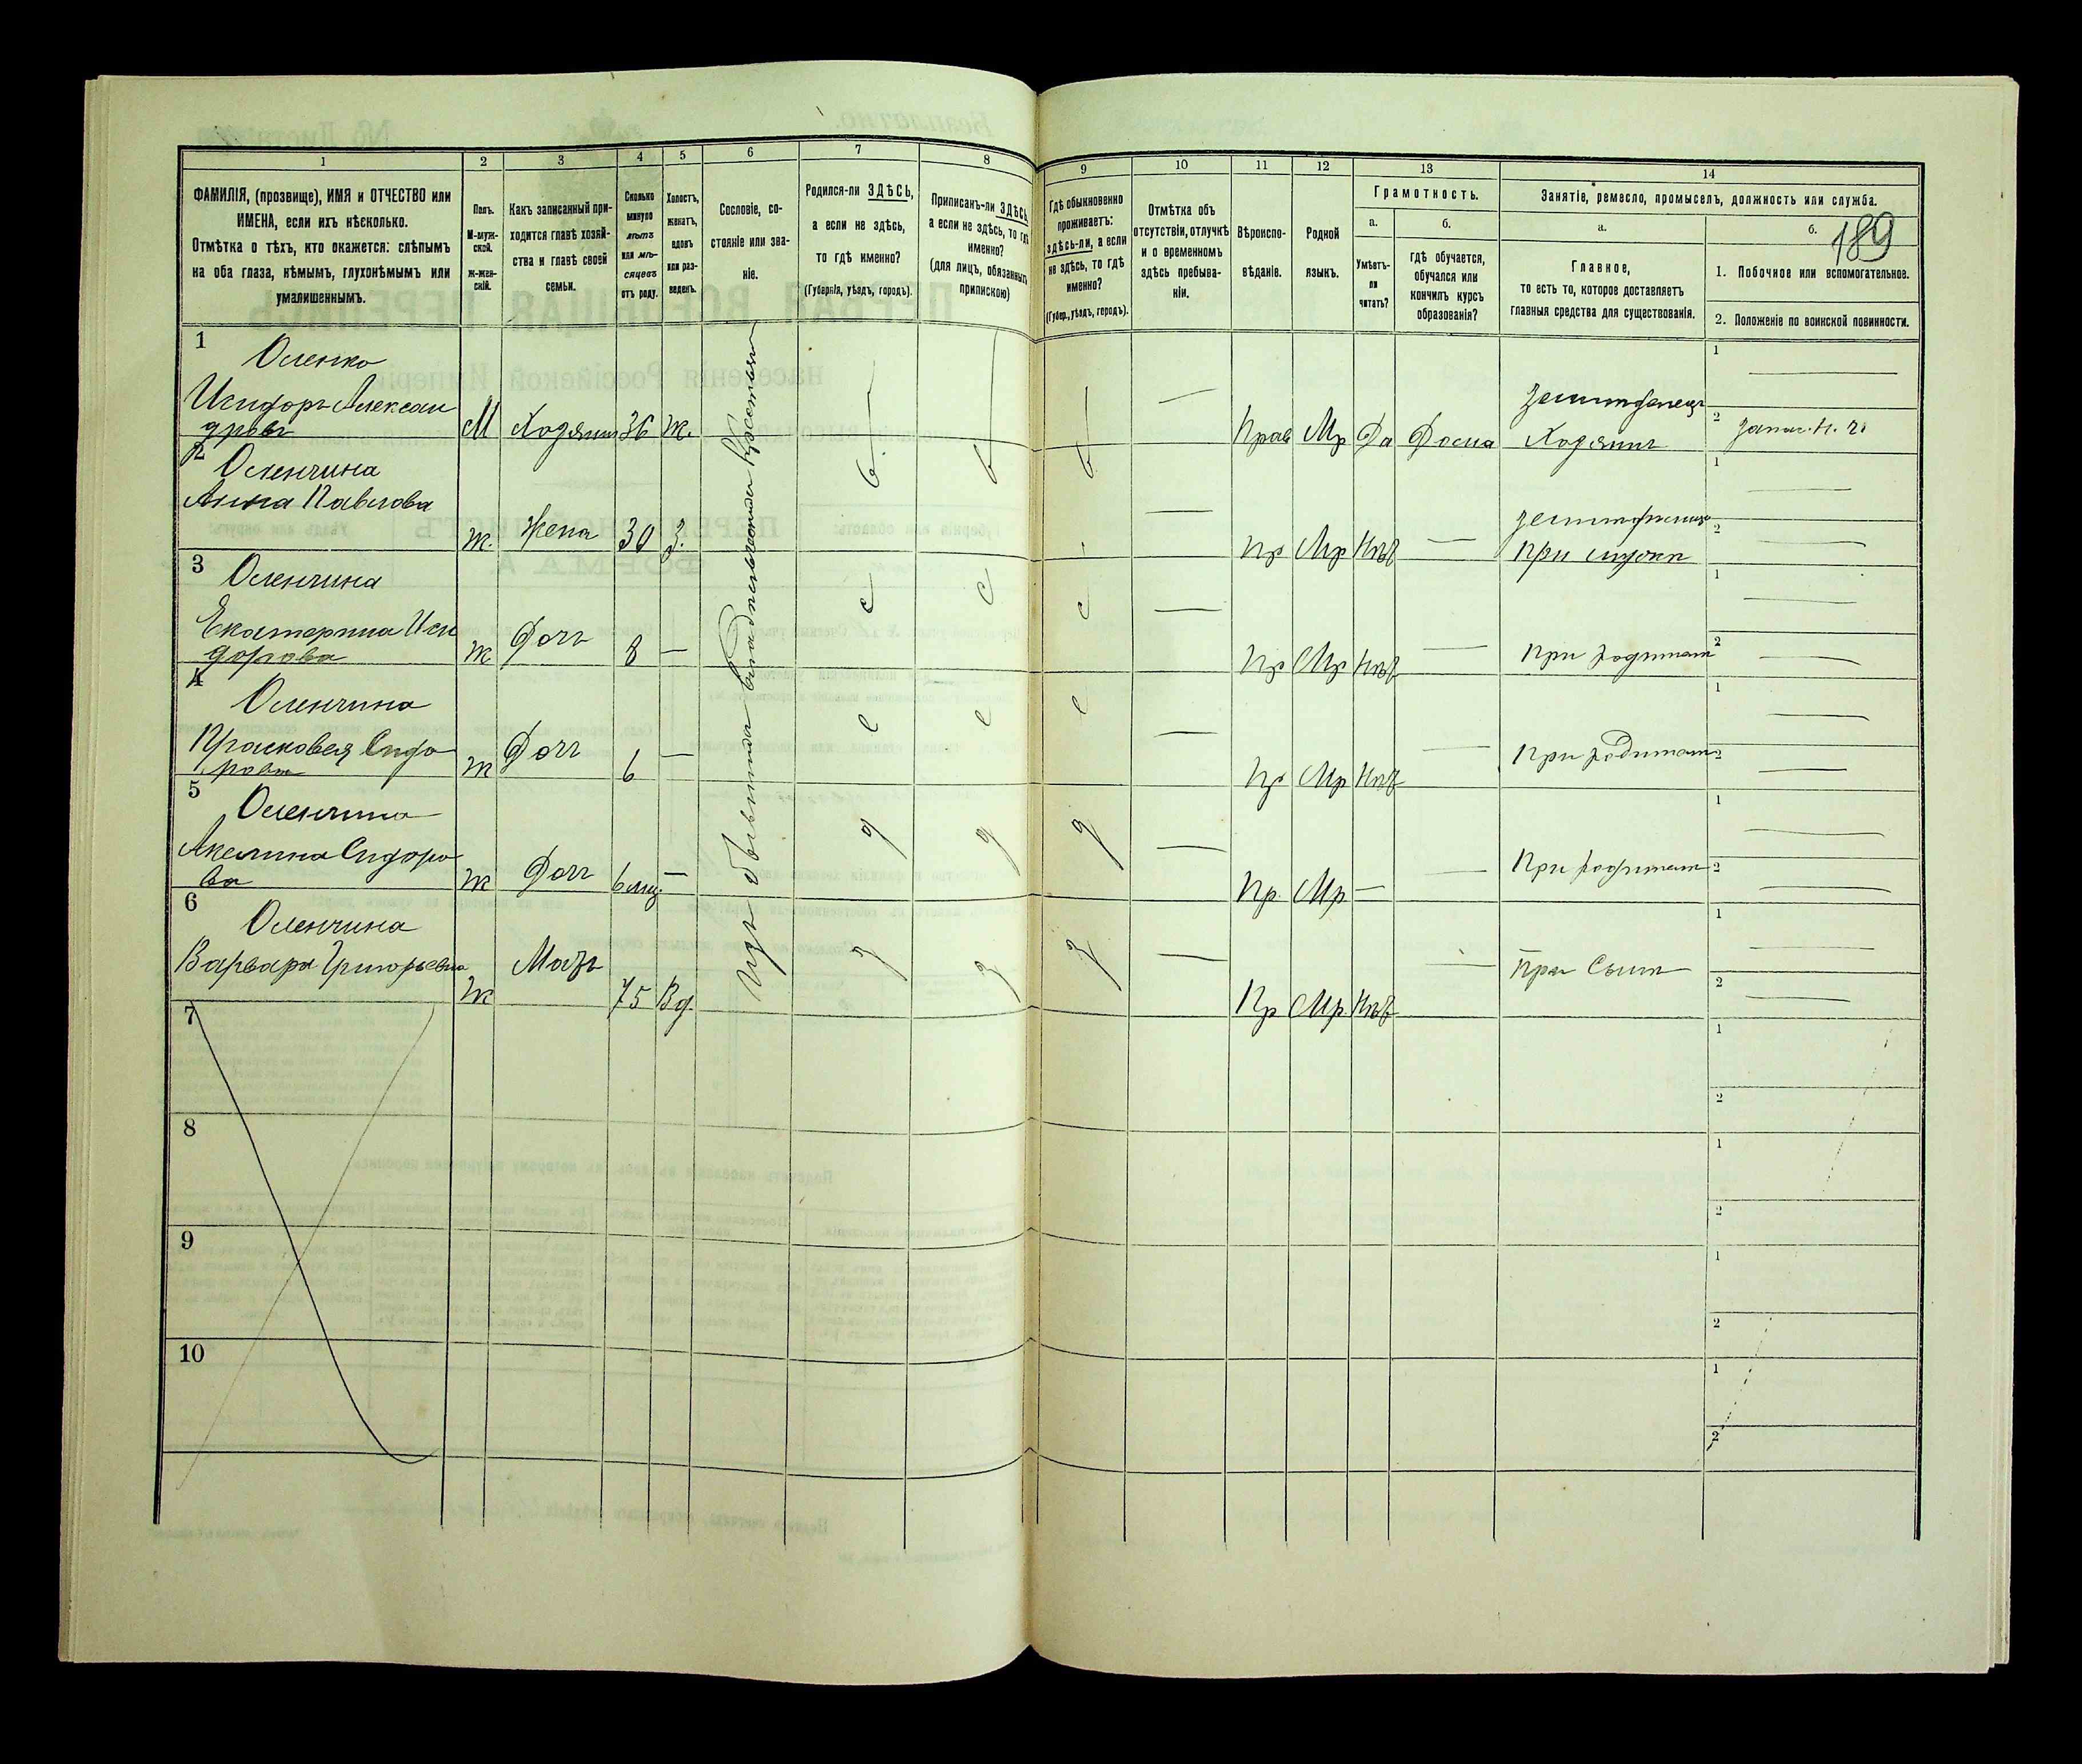 1 2 3 4 5 6 7 8 9 10 11 12 13 14
189
ФАМИЛІЯ, (прозвище), ИМЯ и ОТЧЕСТВО или
ИМЕНА, если ихъ нѣсколько.
Отмѣтка о тѣхъ, кто окажется: слѣпымъ
на оба глаза, нѣмымъ, глухонѣмымъ или
умалишеннымъ.
Полъ.
М-муж-
ской.
Ж-жен-
скій.
Какъ записанный при-
ходится главѣ хозяй-
ства и главѣ своей
семьи.
Сколько
минуло
лѣтъ
или мѣ-
сяцевъ
отъ роду.
Холостъ,
женатъ,
вдовъ
или раз-
веденъ.
Сословіе, со-
стояніе или зва-
ніе.
Родился-ли ЗДѢСЬ,
а если не здѣсь,
то гдѣ именно?
(Губернія, уѣздъ, городъ).
Приписанъ-ли ЗДѢСЬ,
а если не здѣсь, то гдѣ
именно?
(для лицъ, обязанныхъ
припискою)
Гдѣ обыкновенно
проживаетъ:
здѣсь-ли, а если
не здѣсь, то гдѣ
именно?
(Губер., уѣздъ, городъ).
Отмѣтка объ
отсутствіи, отлучкѣ
и о временномъ
здѣсь пребыва-
ніи.
Вѣроиспо-
вѣданіе.
Родной
языкъ.
Грамотность.
а.
Умѣетъ-
ли
читать?
б.
гдѣ обучается,
обучался или
кончилъ курсъ
образованія?
Занятіе, ремесло, промыселъ, должность или служба.
а.
Главное,
то есть то, которое доставляетъ
главныя средства для существованія.
б.
1. Побочное или вспомогательное.
2. Положеніе по воинской повинности.
1
Оленко
Исидоръ Алексан
дровъ М Хозяинъ 36 Ж. Прав Мр Да Дома Хозяинъ
2
Оленчина
Анна Павлова
Ж. Жена 30 З. Пр Мр Нѣт При мужѣ
3
Оленчина
Екатерина Иси
дорова Ж Дочь 8 Пр Мр Нѣт При родителѣ
4
Оленчина
Прасковея Сидо
рова Ж Дочь 6 Пр Мр Нѣт При родител
5
Оленчина
Акелина Сидоро
ва Ж Дочь 6 мц. Пр. Мр При родител
6
Оленчина
Варвара Григорьевна Мать При сынѣ
Ж 75 Вд. Пр Мр Нѣт
7
8
9
10